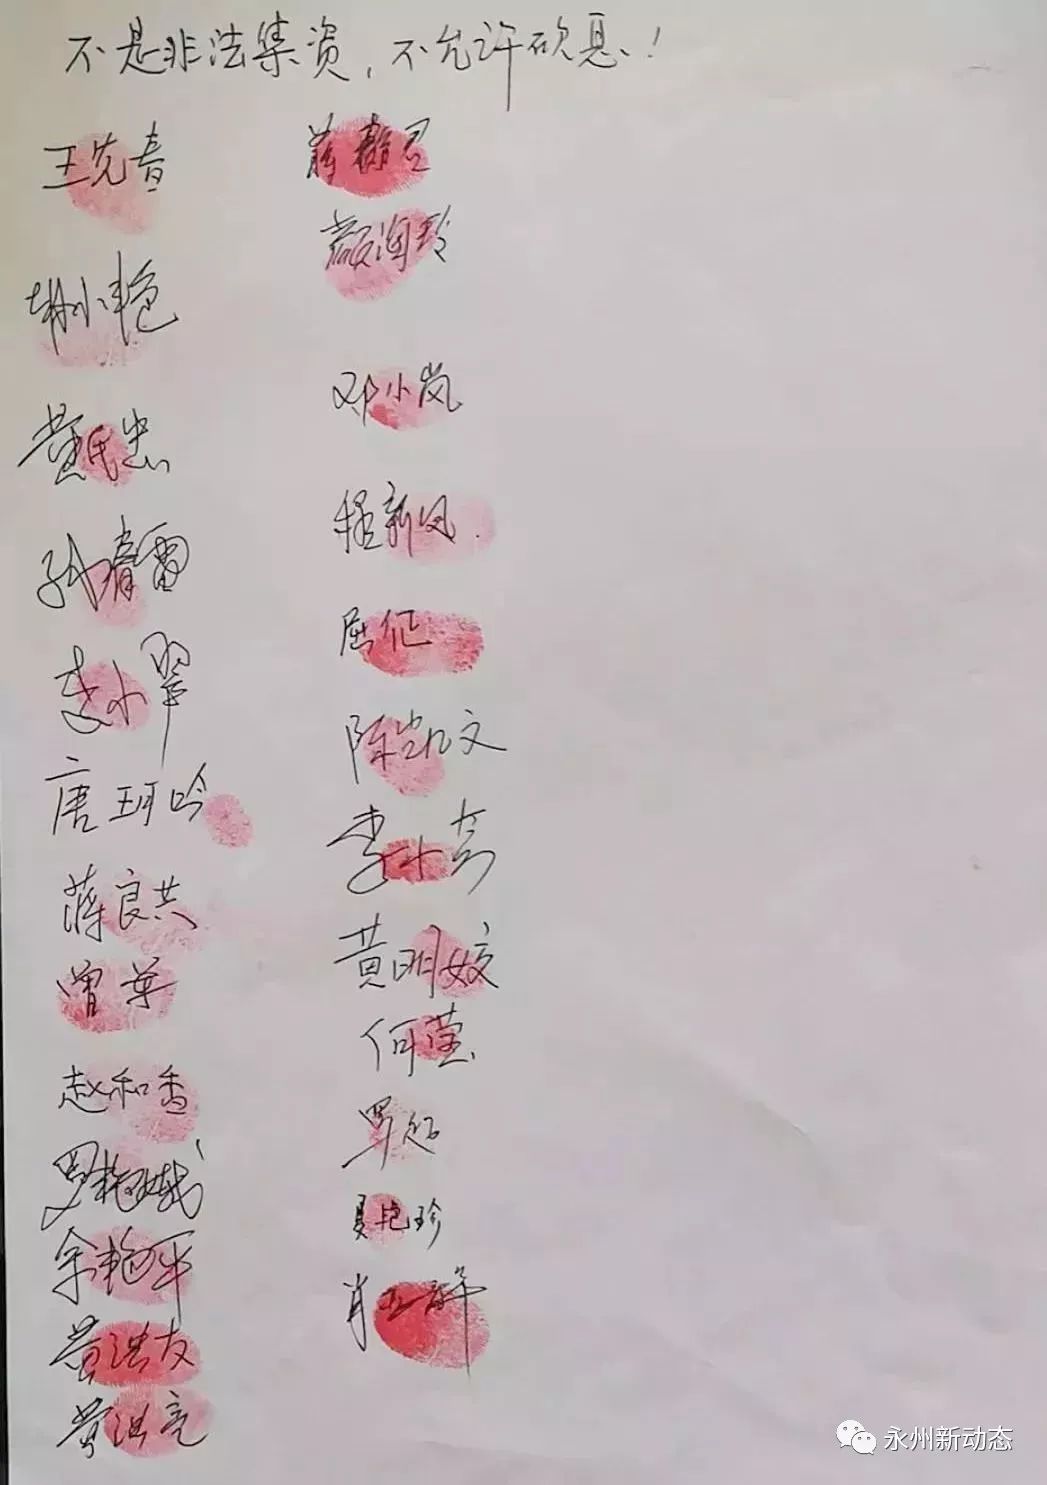 不是非法集资，不允许砍息！
王先音
胡小艳
黄民忠
孙青雷
李小翠
唐珂吟
蒋良共
曾华
赵和香
罗艳娥
余艳平
黄洪友
黄洪亮
蒋
颜润玲
邓小岚
程新凤
屈征
陈凯文
李小芳
黄明姣
何莹
罗超
夏艳珍
肖
永州新动态